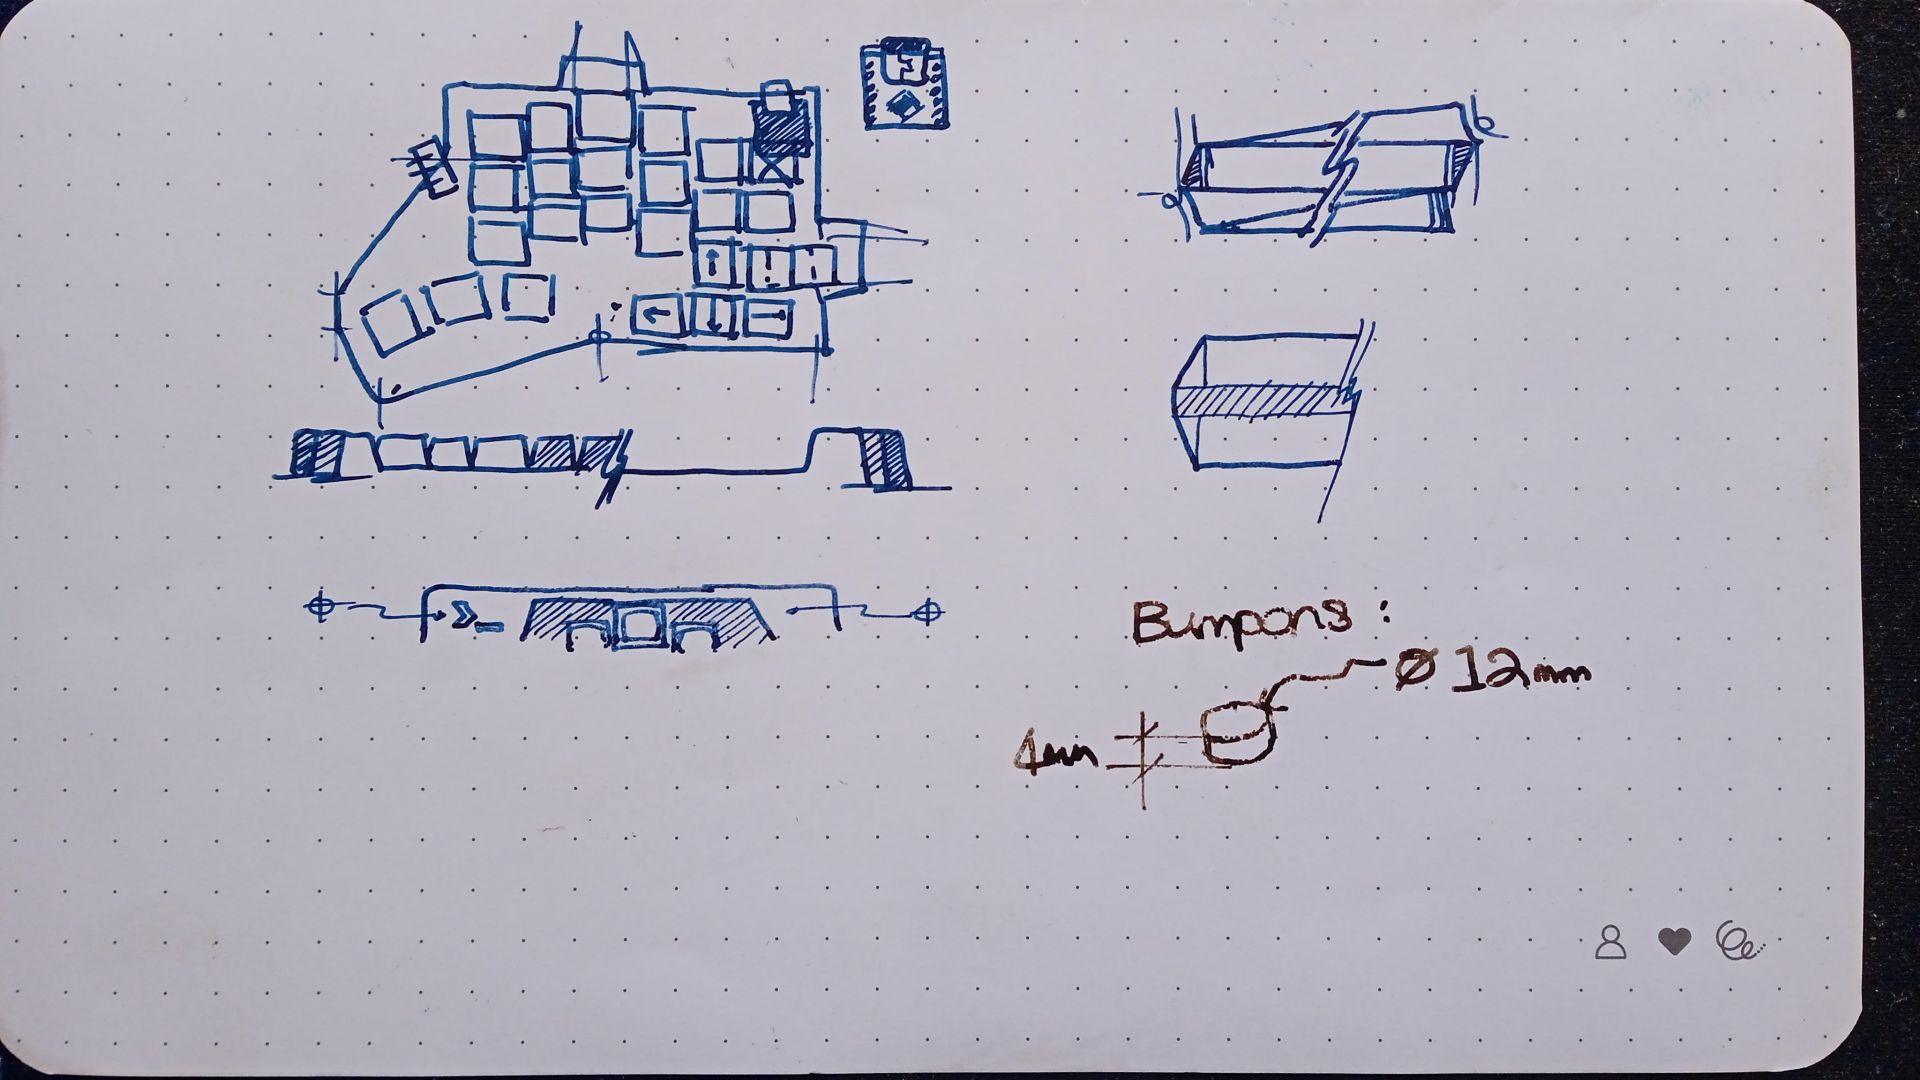 Bumpons :
Ø 12mm
4mm